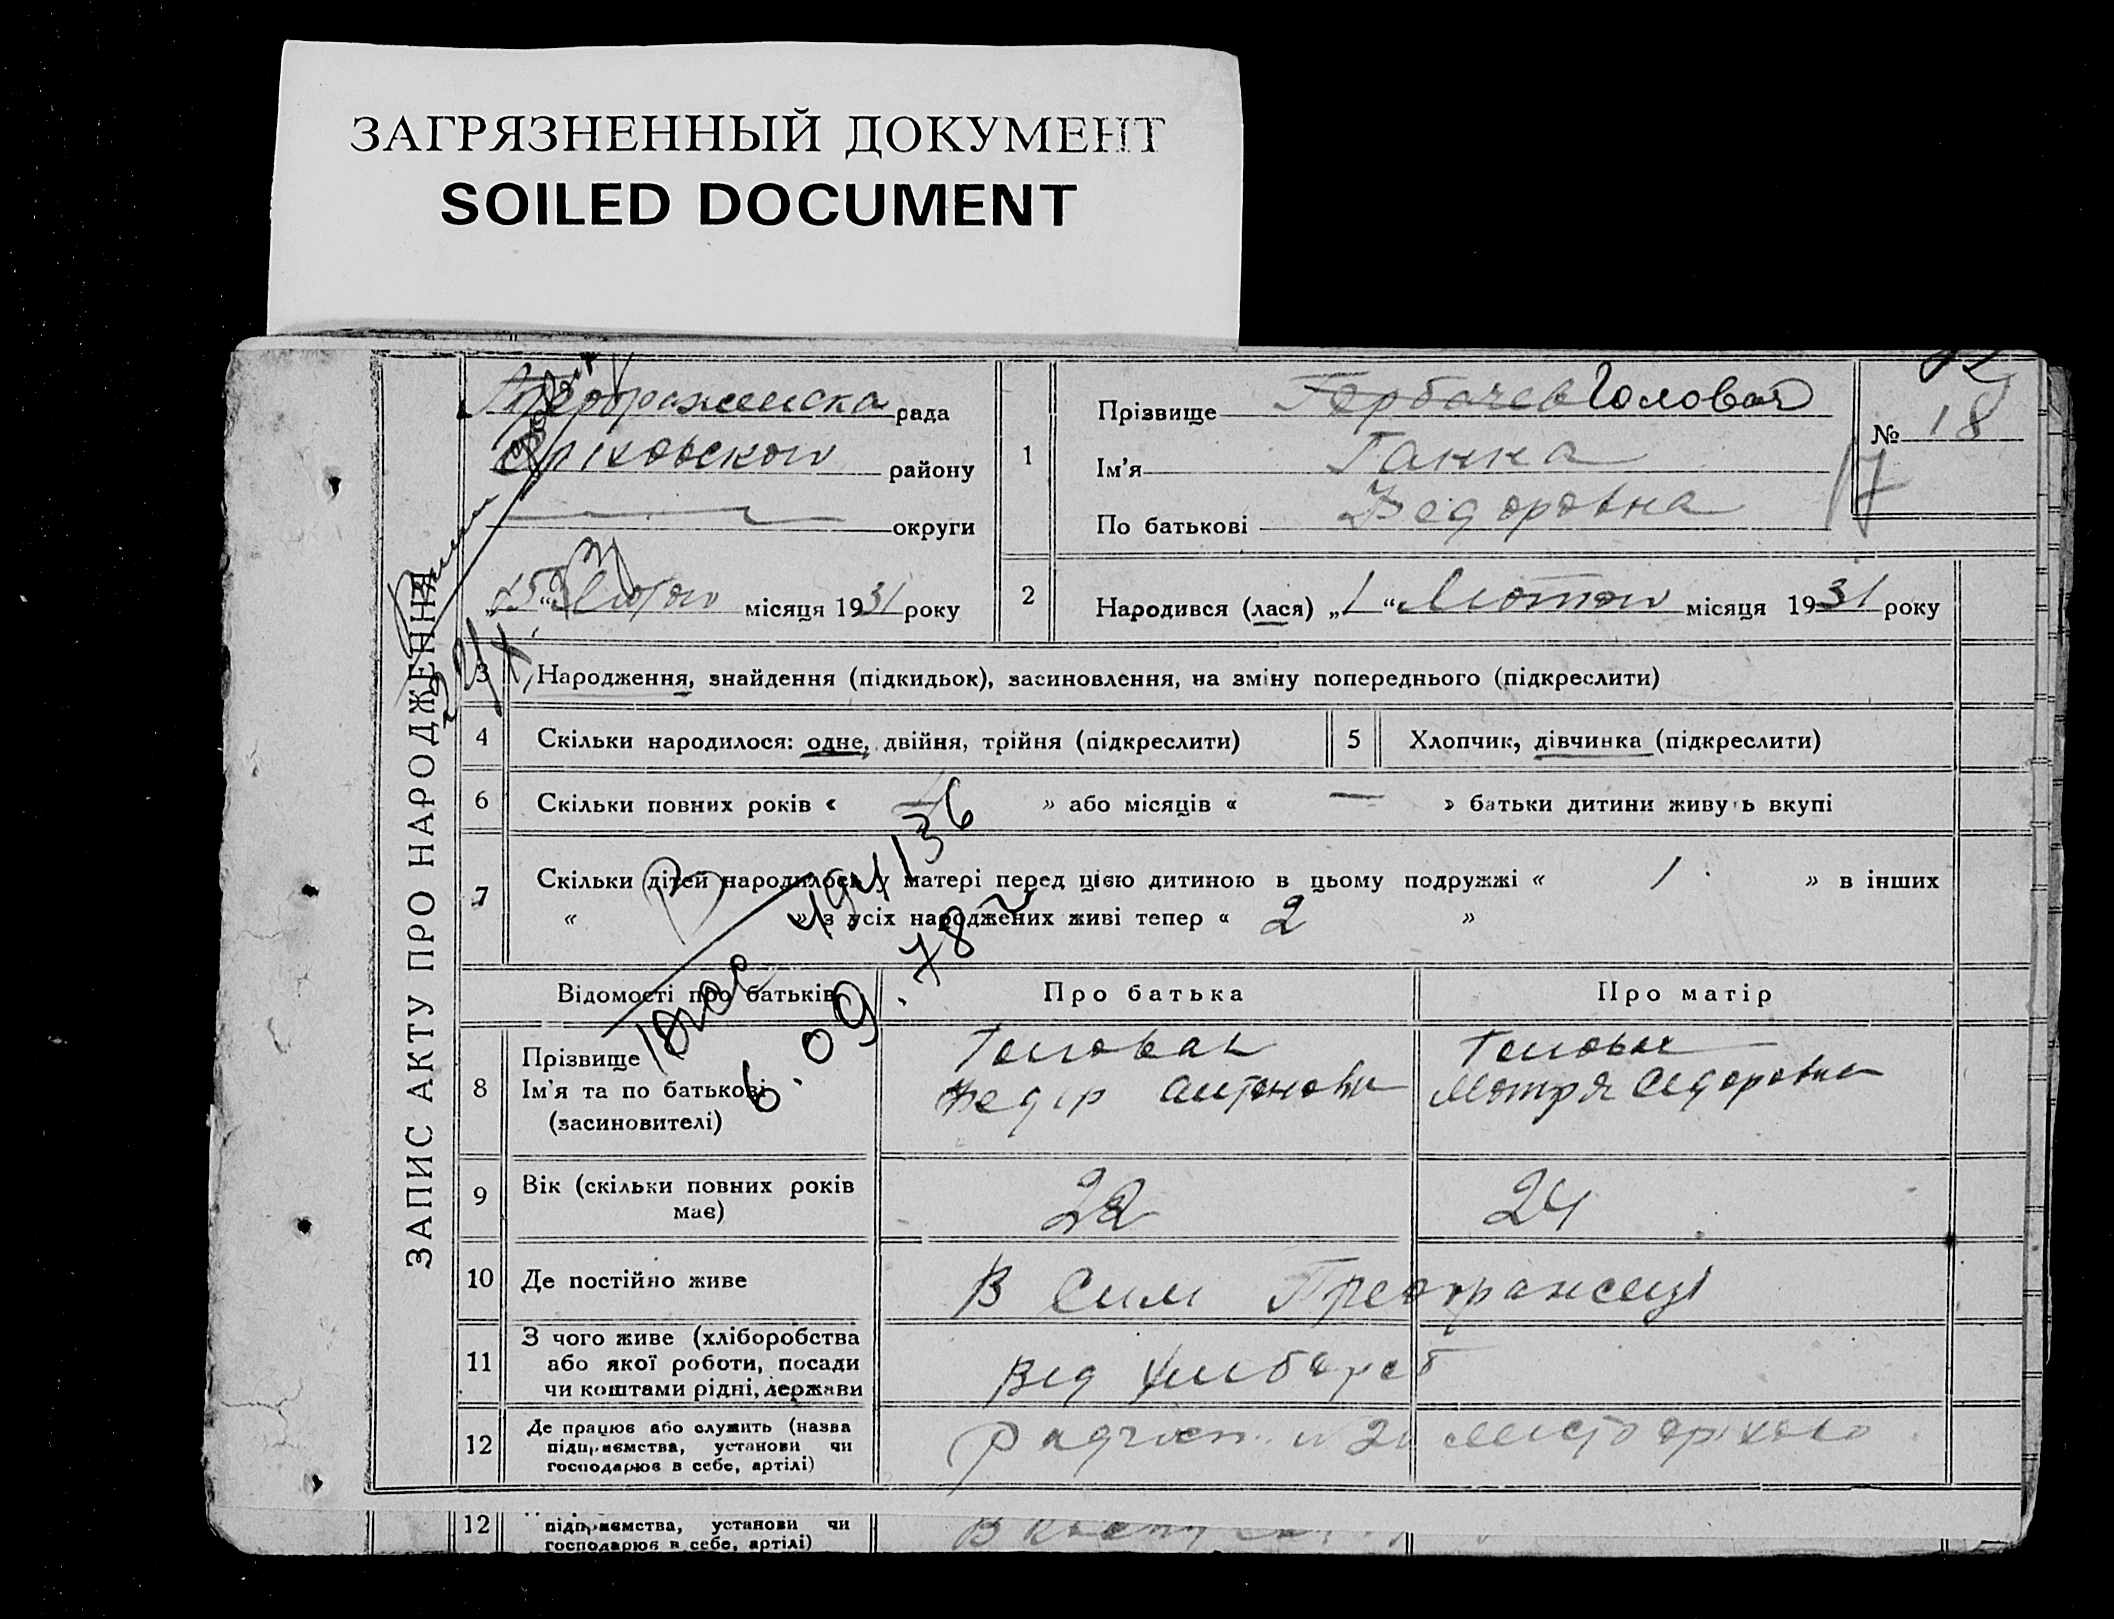 ЗАГРЯЗНЕННЫЙ ДОКУМЕНТ
SOILED DOCUMENT
ЗАПИС АКТУ ПРО НАРОДЖЕННЯ
Преображенска рада
району
округи
„15“ Лютого місяця 1931 року
1
Прізвище Горбачев Головай
Ім'я Ганна
По батькові Федоровна
№ 18
17
2
Народився (лася) „1“ Лютого місяця 1931 року
3 Народження, знайдення (підкидьок), засиновлення, на зміну попереднього (підкреслити)
4 Скільки народилося: одне, двійня, трійня (підкреслити)
5 Хлопчик, дівчинка (підкреслити)
6 Скільки повних років « » або місяців « — » батьки дитини живуть вкупі
7 Скільки дітей народилося у матері перед цією дитиною в цьому подружжі « 1 » в інших
« » з усіх народжених живі тепер « 2 »
6.09.78
Відомості про батьків Про батька Про матір
8 Прізвище
Ім'я та по батькові
(засиновителі)
Головай
Федір Антонови
Головай
Мотря Сидоровна
9 Вік (скільки повних років має) 22 24
10 Де постійно живе В Преображенці
11 З чого живе (хліборобства
або якої роботи, посади
чи коштами рідні, держави
Від
12 Де працює або служить (назва
підприємства, установи чи
господарює в себе, артілі)
Радгосп
12
підприємства, установи чи
господарює в себе, артілі)